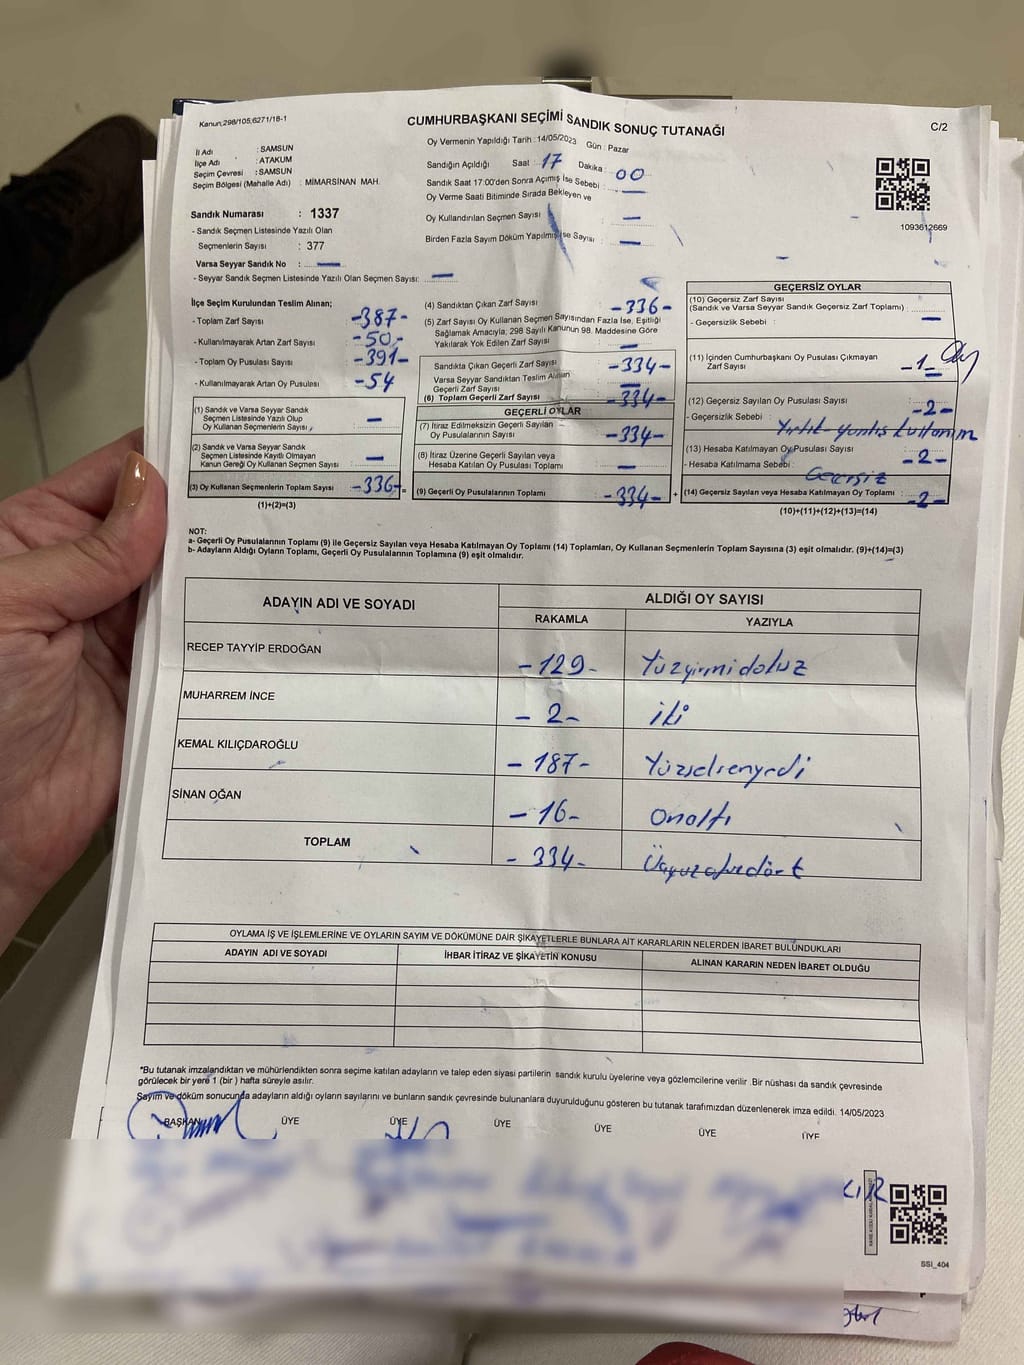 Kanun;298/105;6271/18-1
CUMHURBAŞKANI SEÇİMİ SANDIK SONUÇ TUTANAĞI
C/2
İl Adı : SAMSUN
İlçe Adı : ATAKUM
Seçim Çevresi : SAMSUN
Seçim Bölgesi (Mahalle Adı) : MİMARSİNAN MAH.
Oy Vermenin Yapıldığı Tarih : 14/05/2023 Gün : Pazar
Sandığın Açıldığı Saat : 17 Dakika : 00
Sandık Saat 17:00'den Sonra Açılmış İse Sebebi : —
Oy Verme Saati Bitiminde Sırada Bekleyen ve
Oy Kullandırılan Seçmen Sayısı —
Birden Fazla Sayım Döküm Yapılmış İse Sayısı : —
1093612669
Sandık Numarası : 1337
- Sandık Seçmen Listesinde Yazılı Olan
Seçmenlerin Sayısı : 377
Varsa Seyyar Sandık No : —
- Seyyar Sandık Seçmen Listesinde Yazılı Olan Seçmen Sayısı: —
İlçe Seçim Kurulundan Teslim Alınan;
- Toplam Zarf Sayısı -387-
- Kullanılmayarak Artan Zarf Sayısı -50-
- Toplam Oy Pusulası Sayısı -391-
- Kullanılmayarak Artan Oy Pusulası -54
(1) Sandık ve Varsa Seyyar Sandık
Seçmen Listesinde Yazılı Olup
Oy Kullanan Seçmenlerin Sayısı —
(2) Sandık ve Varsa Seyyar Sandık
Seçmen Listesinde Kayıtlı Olmayan
Kanun Gereği Oy Kullanan Seçmen Sayısı —
(3) Oy Kullanan Seçmenlerin Toplam Sayısı -336-
(1)+(2)=(3)
(4) Sandıktan Çıkan Zarf Sayısı -336-
(5) Zarf Sayısı Oy Kullanan Seçmen Sayısından Fazla İse, Eşitliği
Sağlamak Amacıyla; 298 Sayılı Kanunun 98. Maddesine Göre
Yakılarak Yok Edilen Zarf Sayısı —
Sandıkta Çıkan Geçerli Zarf Sayısı -334-
Varsa Seyyar Sandıktan Teslim Alınan
Geçerli Zarf Sayısı —
(6) Toplam Geçerli Zarf Sayısı -334-
GEÇERLİ OYLAR
(7) İtiraz Edilmeksizin Geçerli Sayılan
Oy Pusulalarının Sayısı -334-
(8) İtiraz Üzerine Geçerli Sayılan veya
Hesaba Katılan Oy Pusulası Toplamı —
(9) Geçerli Oy Pusulalarının Toplamı -334-
GEÇERSİZ OYLAR
(10) Geçersiz Zarf Sayısı
(Sandık ve Varsa Seyyar Sandık Geçersiz Zarf Toplamı)
- Geçersizlik Sebebi : —
(11) İçinden Cumhurbaşkanı Oy Pusulası Çıkmayan
Zarf Sayısı -1-
(12) Geçersiz Sayılan Oy Pusulası Sayısı -2-
- Geçersizlik Sebebi : Yırtık-yanlış kullanım
(13) Hesaba Katılmayan Oy Pusulası Sayısı -2-
- Hesaba Katılmama Sebebi : Geçersiz
+ (14) Geçersiz Sayılan veya Hesaba Katılmayan Oy Toplamı : -2-
(10)+(11)+(12)+(13)=(14)
NOT:
a- Geçerli Oy Pusulalarının Toplamı (9) ile Geçersiz Sayılan veya Hesaba Katılmayan Oy Toplamı (14) Toplamları, Oy Kullanan Seçmenlerin Toplam Sayısına (3) eşit olmalıdır. (9)+(14)=(3)
b- Adayların Aldığı Oyların Toplamı, Geçerli Oy Pusulalarının Toplamına (9) eşit olmalıdır.
ADAYIN ADI VE SOYADI
ALDIĞI OY SAYISI
RAKAMLA YAZIYLA
RECEP TAYYİP ERDOĞAN -129- Yüzyirmidokuz
MUHARREM İNCE -2- iki
KEMAL KILIÇDAROĞLU -187- Yüzseksenyedi
SİNAN OĞAN -16- Onaltı
TOPLAM -334- Üçyüzotuzdört
OYLAMA İŞ VE İŞLEMLERİNE VE OYLARIN SAYIM VE DÖKÜMÜNE DAİR ŞİKAYETLERLE BUNLARA AİT KARARLARIN NELERDEN İBARET BULUNDUKLARI
ADAYIN ADI VE SOYADI İHBAR İTİRAZ VE ŞİKAYETİN KONUSU ALINAN KARARIN NEDEN İBARET OLDUĞU
*Bu tutanak imzalandıktan ve mühürlendikten sonra seçime katılan adayların ve talep eden siyasi partilerin sandık kurulu üyelerine veya gözlemcilerine verilir .Bir nüshası da sandık çevresinde
görülecek bir yere 1 (bir ) hafta süreyle asılır.
Sayım ve döküm sonucunda adayların aldığı oyların sayılarını ve bunların sandık çevresinde bulunanlara duyurulduğunu gösteren bu tutanak tarafımızdan düzenlenerek imza edildi. 14/05/2023
BAŞKAN ÜYE ÜYE ÜYE ÜYE ÜYE ÜYE
SSI_404